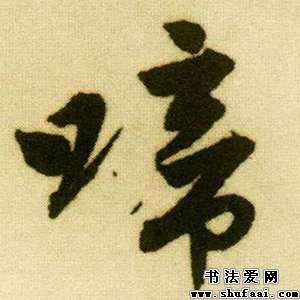 啼
书法爱网
www.shufaai.com